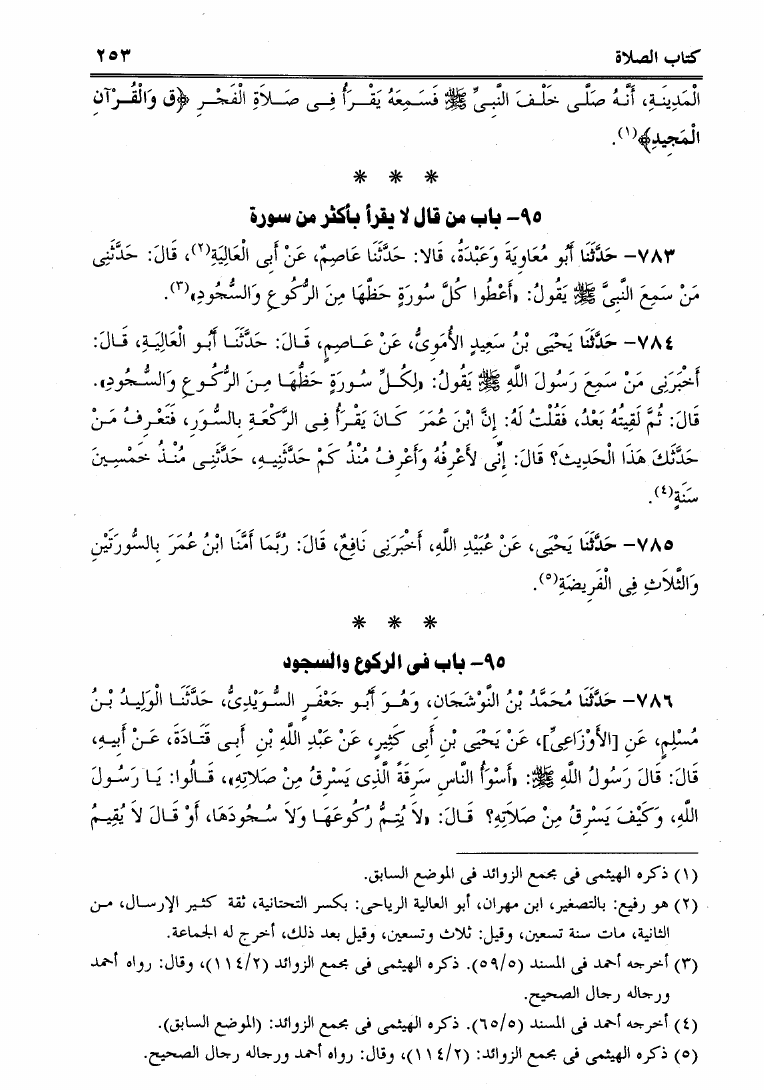 كتاب الصلاة ٢٥٣
الْمَدِينَةِ، أَنَّهُ صَلَّى خَلْفَ النَّبِىِّ ﷺ فَسَمِعَهُ يَقْرَأُ فِى صَلاَةِ الْفَجْرِ ﴿ق وَالْقُرْآنِ
الْمَجِيدِ﴾(١).
* * *
٩٥- باب من قال لا يقرأ بأكثر من سورة
٧٨٣- حَدَّثَنَا أَبُو مُعَاوِيَةَ وَعَبْدَةُ، قَالا: حَدَّثَنَا عَاصِمٌ، عَنْ أَبِى الْعَالِيَةِ(٢)، قَالَ: حَدَّثَنِى
مَنْ سَمِعَ النَّبِىَّ ﷺ يَقُولُ: «أَعْطُوا كُلَّ سُورَةٍ حَظَّهَا مِنَ الرُّكُوعِ وَالسُّجُودِ»(٣).
٧٨٤- حَدَّثَنَا يَحْيَى بْنُ سَعِيدٍ الأُمَوِىُّ، عَنْ عَاصِمٍ، قَالَ: حَدَّثَنَا أَبُو الْعَالِيَةِ، قَالَ:
أَخْبَرَنِى مَنْ سَمِعَ رَسُولَ اللَّهِ ﷺ يَقُولُ: «لِكُلِّ سُورَةٍ حَظُّهَا مِنَ الرُّكُوعِ وَالسُّجُودِ».
قَالَ: ثُمَّ لَقِيتُهُ بَعْدُ، فَقُلْتُ لَهُ: إِنَّ ابْنَ عُمَرَ كَانَ يَقْرَأُ فِى الرَّكْعَةِ بِالسُّوَرِ، فَتَعْرِفُ مَنْ
حَدَّثَكَ هَذَا الْحَدِيثَ؟ قَالَ: إِنِّى لأَعْرِفُهُ وَأَعْرِفُ مُنْذُ كَمْ حَدَّثَنِيهِ، حَدَّثَنِى مُنْذُ خَمْسِينَ
سَنَةٍ(٤).
٧٨٥- حَدَّثَنَا يَحْيَى، عَنْ عُبَيْدِ اللَّهِ، أَخْبَرَنِى نَافِعٌ، قَالَ: رُبَّمَا أَمَّنَا ابْنُ عُمَرَ بِالسُّورَتَيْنِ
وَالثَّلاَثِ فِى الْفَرِيضَةِ(٥).
* * *
٩٥- باب فى الركوع والسجود
٧٨٦- حَدَّثَنَا مُحَمَّدُ بْنُ النَّوْشَجَانِ، وَهُوَ أَبُو جَعْفَرٍ السُّوَيْدِىُّ، حَدَّثَنَا الْوَلِيدُ بْنُ
مُسْلِمٍ، عَنِ [الأَوْزَاعِىِّ]، عَنْ يَحْيَى بْنِ أَبِى كَثِيرٍ، عَنْ عَبْدِ اللَّهِ بْنِ أَبِى قَتَادَةَ، عَنْ أَبِيهِ،
قَالَ: قَالَ رَسُولُ اللَّهِ ﷺ: «أَسْوَأُ النَّاسِ سَرِقَةً الَّذِى يَسْرِقُ مِنْ صَلاَتِهِ»، قَالُوا: يَا رَسُولَ
اللَّهِ، وَكَيْفَ يَسْرِقُ مِنْ صَلاَتِهِ؟ قَالَ: «لاَ يُتِمُّ رُكُوعَهَا وَلاَ سُجُودَهَا، أَوْ قَالَ لاَ يُقِيمُ
(١) ذكره الهيثمى فى مجمع الزوائد فى الموضع السابق.
(٢) هو رفيع: بالتصغير، ابن مهران، أبو العالية الرياحى: بكسر التحتانية، ثقة كثير الإرسال، من
الثانية، مات سنة تسعين، وقيل: ثلاث وتسعين، وقيل بعد ذلك، أخرج له الجماعة.
(٣) أخرجه أحمد فى المسند (٥٩/٥). ذكره الهيثمى فى مجمع الزوائد (١١٤/٢)، وقال: رواه أحمد
ورجاله رجال الصحيح.
(٤) أخرجه أحمد فى المسند (٦٥/٥). ذكره الهيثمى فى مجمع الزوائد: (الموضع السابق).
(٥) ذكره الهيثمى فى مجمع الزوائد: (١١٤/٢)، وقال: رواه أحمد ورجاله رجال الصحيح.